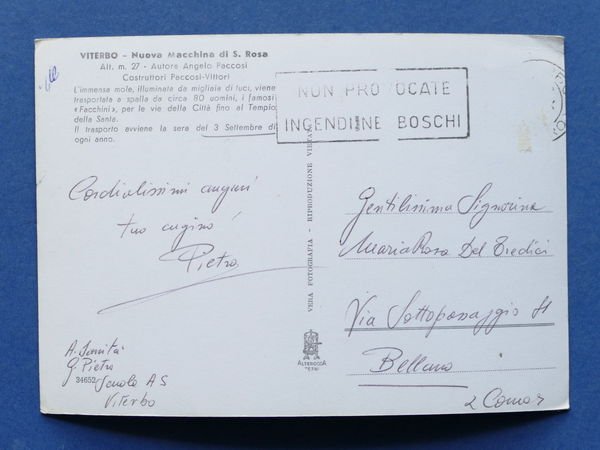 VITERBO - Nuova Macchina di S. Rosa
Alt. m. 27 - Autore Angelo Paccosi
Costruttori Paccosi-Vittori
L'immensa mole, illuminata da migliaia di luci, viene
trasportata a spalla da circa 80 uomini, i famosi
«Facchini», per le vie della Città fino al Tempio
della Santa.
Il trasporto avviene la sera del 3 Settembre di
ogni anno.
NON PROVOCATE
INCENDI NE BOSCHI
Cordialissimi auguri
tuo cugino
Pietro
VERA FOTOGRAFIA - RIPRODUZIONE VIETATA
Gentilissima Signorina
Maria Rosa Del Tredici
Via Sottopassaggio 51
Bellano
(Como)
G. Pietro
34652 Scuola A S
Viterbo
ALTEROCCA
TERNI